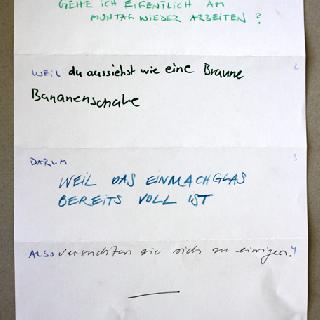 GEHE ICH EIGENTLICH AM
MONTAG WIEDER ARBEITEN?
2
WEIL du aussiehst wie eine Braune
Bananenschale
3
DARUM
WEIL DAS EINMACHGLAS
BEREITS VOLL IST
4
ALSO versuchten sie sich zu einigen.